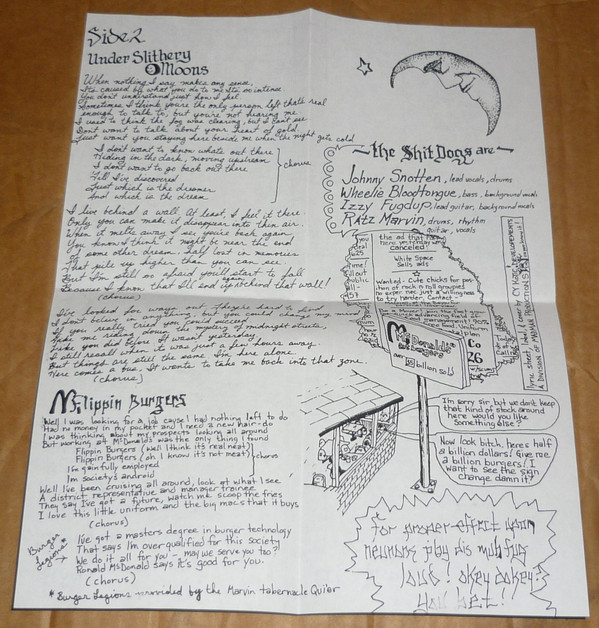 Side 2
Under Slithery
Moons
When nothing I say makes any sense,
Its caused by what you do to me. Its so intense.
You don't understand just how I feel
Sometimes I think you're the only person left thats real
enough to talk to, but you're not hearing me
I used to think the fog was clearing, but I can't see
Don't want to talk about your heart of gold
Just want you staying here beside me when the night gets cold.
I don't want to know whats out there
Hiding in the dark, moving upstream
I don't want to go back out there
Till I've discovered
Just which is the dreamer
And which is the dream
chorus
I live behind a wall. At least, I feel it there.
Only you can make it disappear into thin air.
When it melts away I see you're back again
You know I think it might be near the end
of some other dream. Half lost in memories
That pile up higher than you can see
But I'm still so afraid you'll start to fall
Because I know that I'll end up behind that wall!
again
(chorus)
I've looked for ways out, They're hard to find
I don't believe in anything, but you could change my mind
If you really tried you could
Take me riding down the mystery of midnight streets,
Like you did before it wasn't yesterday
I still recall when it was just a few hours away.
But things are still the same I'm here alone.
Here comes a bus, It wants to take me back into that zone.
(chorus)
Flippin Burgers
Well I was looking for a job cause I had nothing left to do
Had no money in my pocket and I need a new hair-do
I was thinking about my prospects looking all around
But working at McDonalds was the only thing I found
Flipping Burgers (well I think it's neat!)
Flipping Burgers (oh I know it's not meat)
I'm gainfully employed
I'm society's android
chorus
Well I've been cruising all around, look at what I see
A district representative and manager trainee
They say I've got a future, watch me scoop the fries
I love this little uniform and the big macs that it buys
(chorus)
Burger
Legions *
I've got a masters degree in burger technology
That says I'm overqualified for this society
We do it all for you - may we serve you too?!
Ronald McDonald says it's good for you.
(chorus)
* Burger Legions provided by the Marvin tabernacle Qui'er
~ the Shit Dogs are ~
Johnny Snotten, lead vocals, drums
Wheelie Bloodtongue, bass, background vocals
Izzy Fugdup, lead guitar, background vocals
RATZ Marvin, drums, rhythm
guitar, vocals
the ad that ran
here yesterday was
canceled!
White Space
Sells ads
Wanted - Cute chicks for pos-
ition of rock n roll groupies
no exper. nec. just a willingness
to try harder. Contact -
McDonalds
over
billion sold
Co
26
I'm sorry sir, but we don't keep
that kind of stock around
here would you like
something else?
Now look bitch, heres half
a billion dollars! give me
a billion burgers! I
want to see the sign
change damn it!
for proper effect upon
neurons play dis mubfug
loud! okey dokey?
you bet!